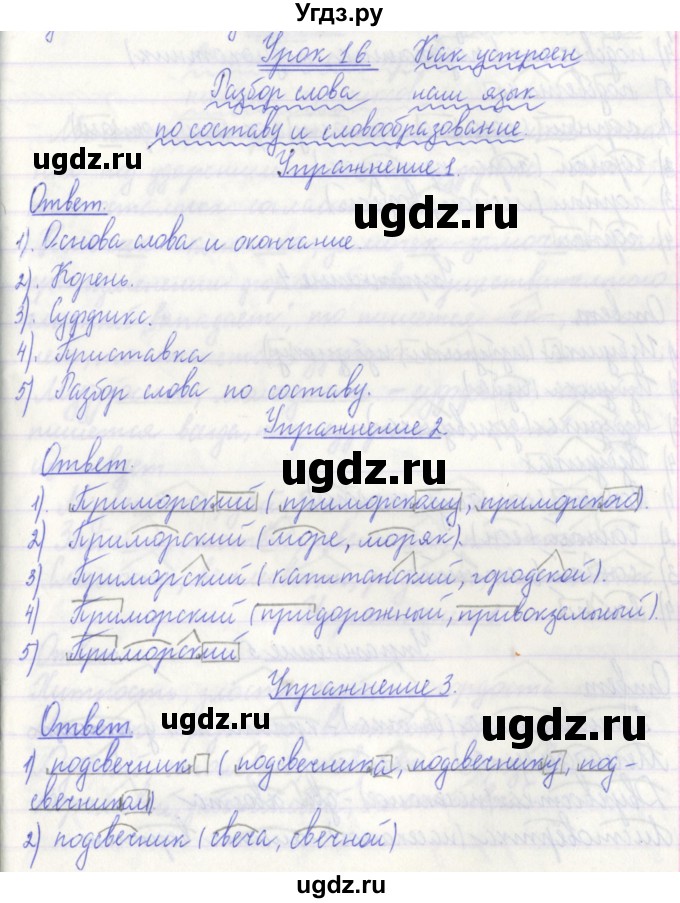 Угдз.ру
Урок 16. Как устроен
Разбор слова наш язык
по составу и словообразование.
ugdz.ru
Упражнение 1.
ugdz.ru
Ответ.
1). Основа слова и окончание.
2). Корень.
3). Суффикс.
4). Приставка
5) Разбор слова по составу.
Упражнение 2.
ugdz.ru
ugdz.ru
Ответ.
1). Приморский (приморскому, приморского).
2) Приморский (море, моряк).
3) Приморский (капитанский, городской).
4) Приморский (придорожный, привокзальный).
5) Приморский
Упражнение 3.
ugdz.ru
ugdz.ru
Ответ
1) подсвечник (подсвечника, подсвечнику, под-
свечником)
2) подсвечник (свеча, свечной)
ugdz.ru